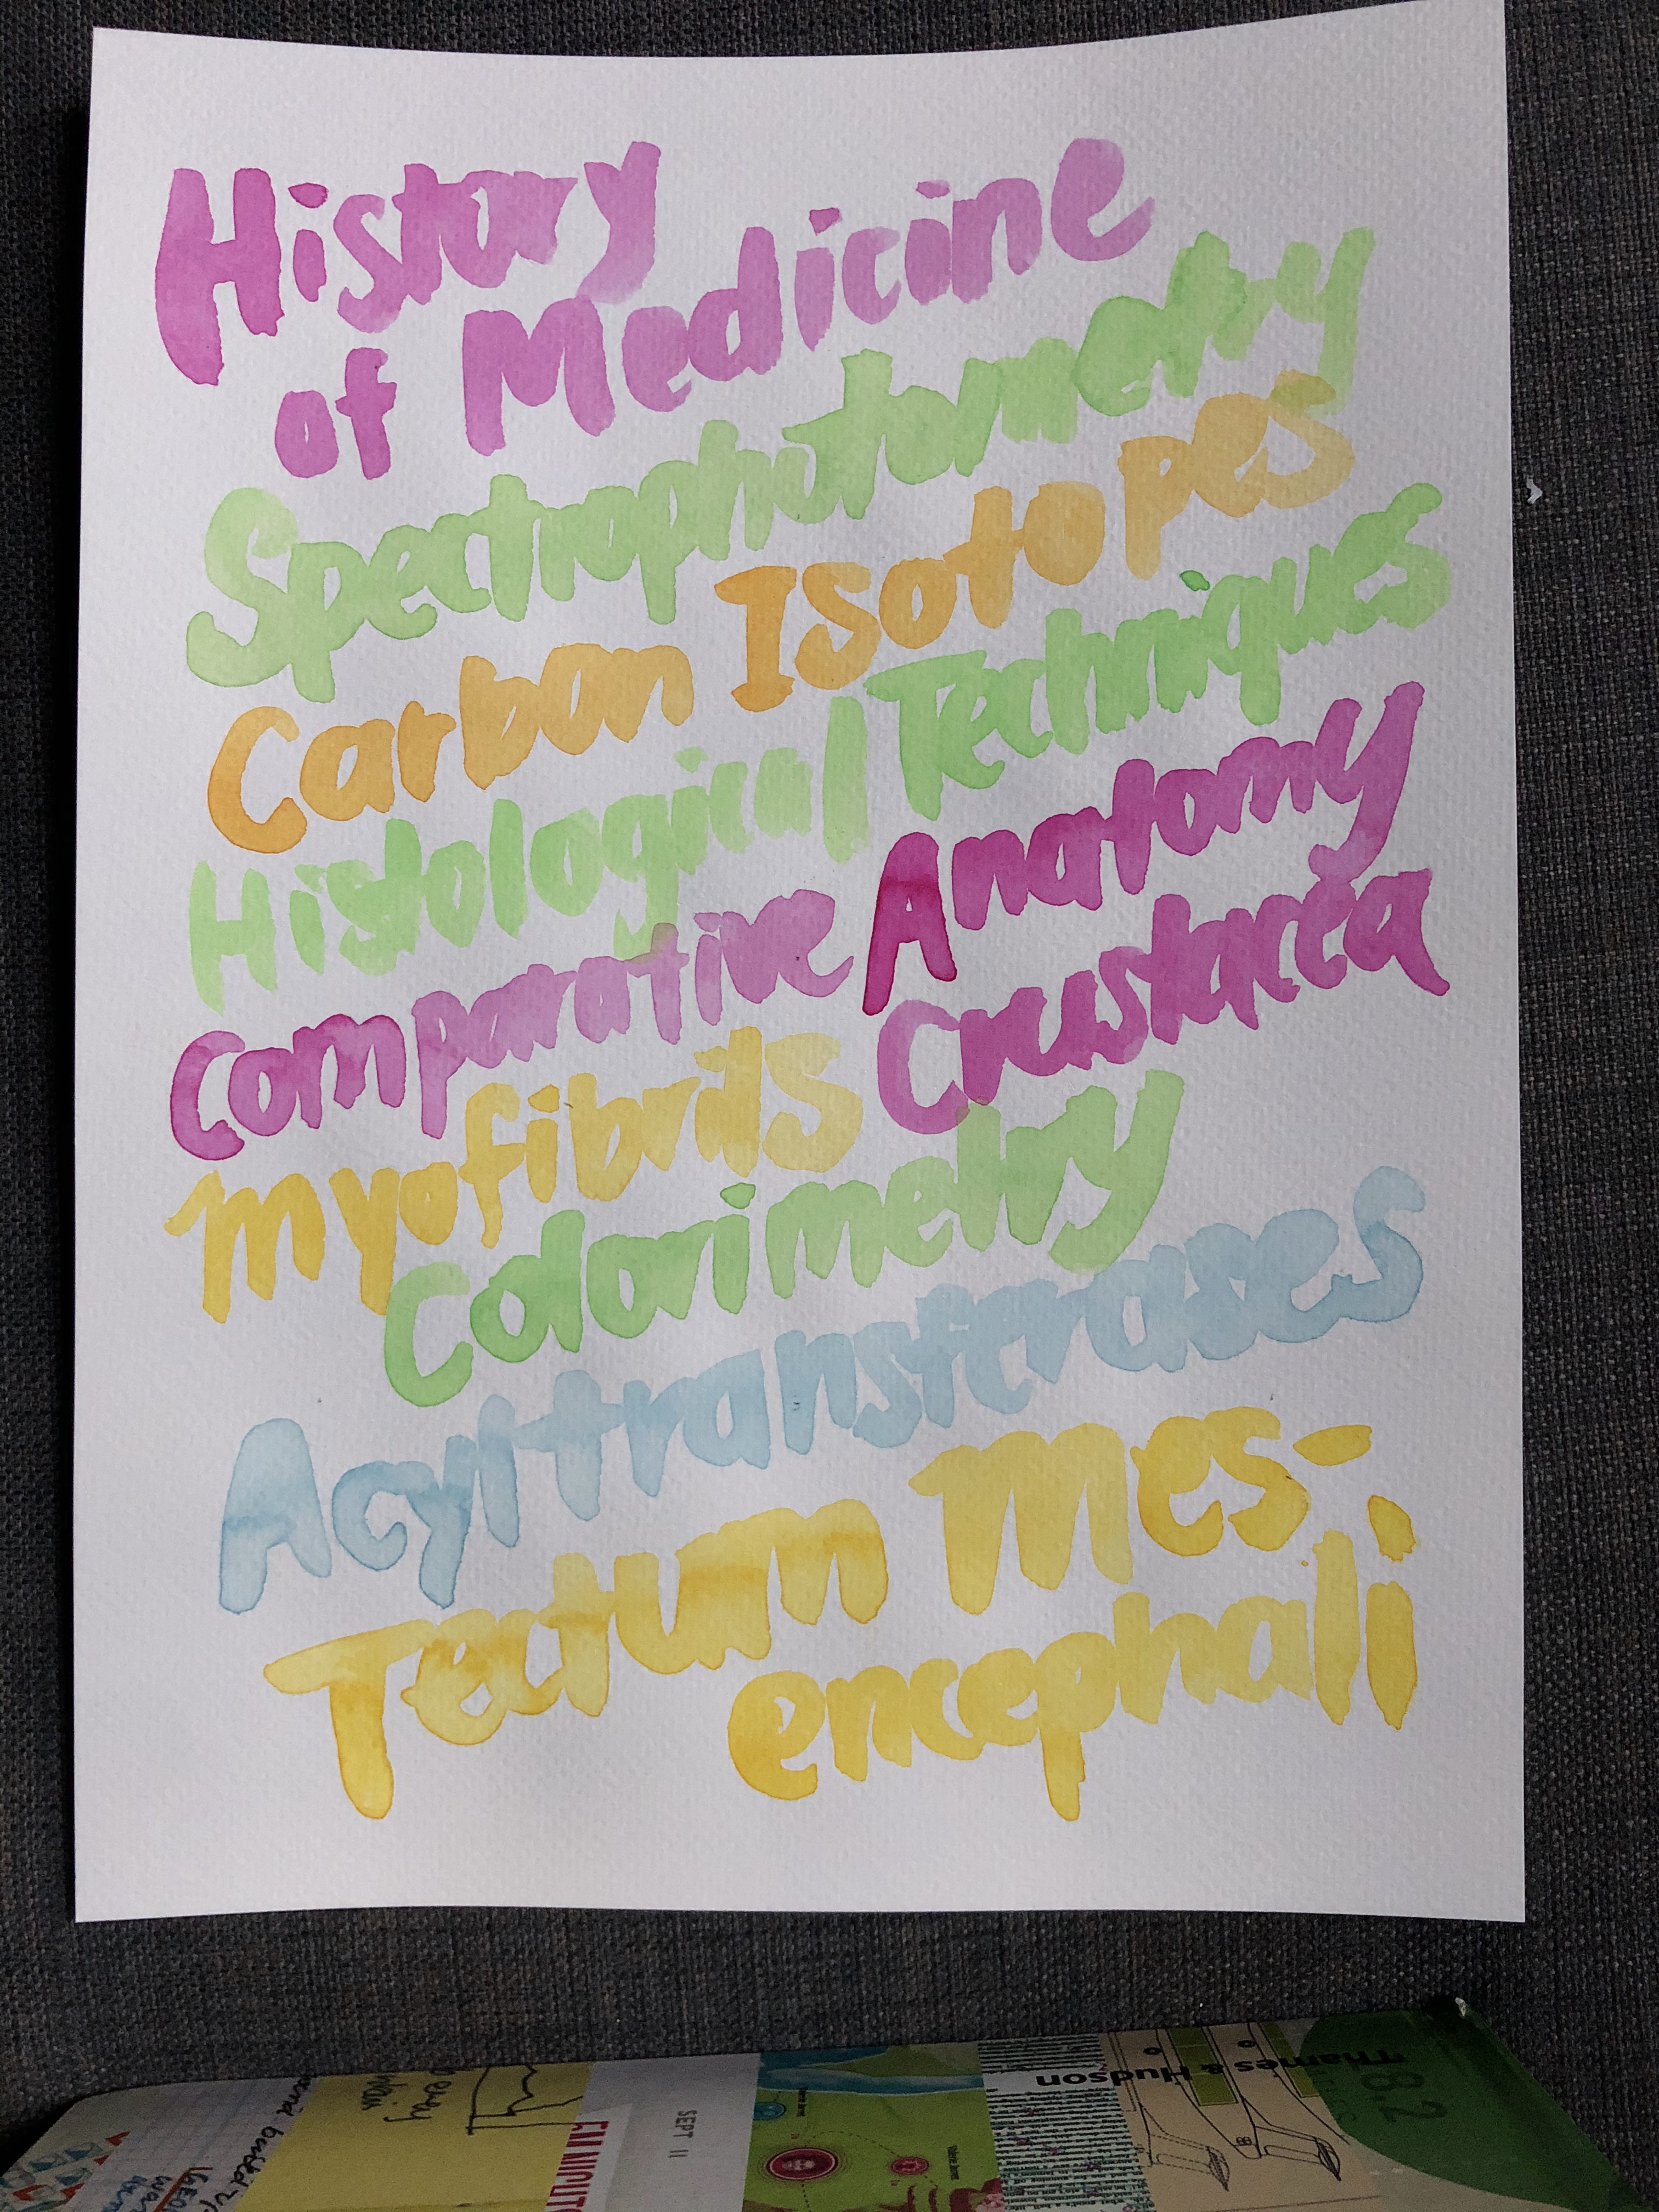 History
of Medicine
Spectrophotometry
Carbon Isotopes
Histological Techniques
Comparative Anatomy
myofibrils Crustacea
Colorimetry
Acyltransferases
Tectum Mes-
encephali
Thames & Hudson
SEPT 11